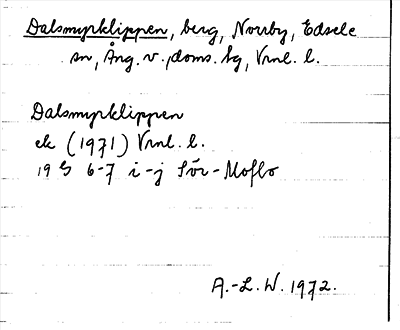 Dalsmyrklippen, berg, Norrby, Edsele
sn, Ång. v. doms. bg, Vrnl. l.
Dalsmyrklippen
ek (1971) Vrnl. l.
19 G 6-7 i-j Sör-Moflo
A.-L. W. 1972.